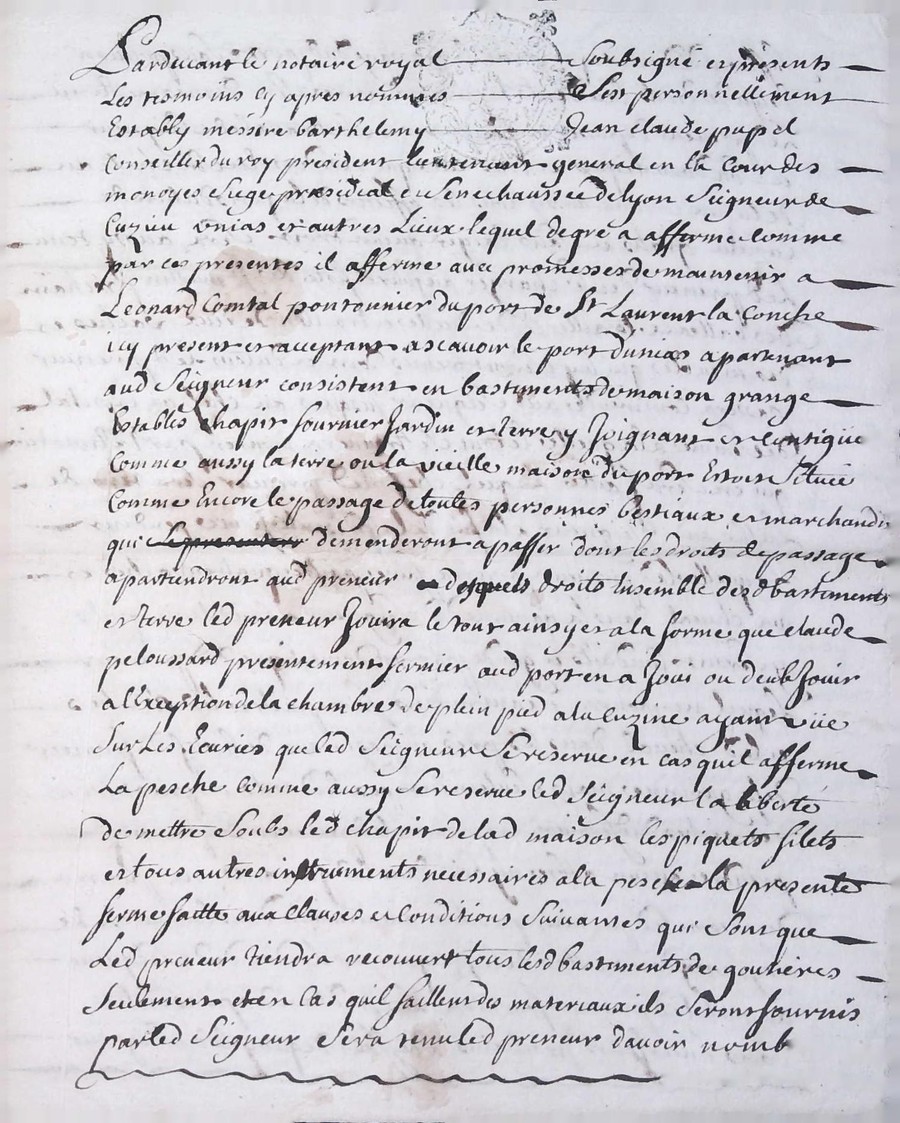 Pardevant le notaire royal soubsigné et présents
Les tesmoins cy apres nommés s'est personnellement
Estably messire barthelemy Jean claude pupil
Conseiller du roy president lieutenant general en la Cour des
monoyes siege presidial et Senechaussée de lyon Seigneur de
Cuzieu unias et autres Lieux lequel de gré a affermé comme
par ces presentes il afferme avec promesses de maintenir a
Leonard Comtal pontonnier du port de St Laurent la Conche
icy present et acceptant ascavoir le port dunias apartenant
aud Seigneur consistent en bastiments de maison grange
Estables chapit fournier Jardin et terre y Joignant et contigüe
Comme aussy la terre ou la vieille maison du port Estoit Située
Comme Encore le passage de toutes personnes bestiaux et marchandis
qui se presenterr demenderont a passer dont les droits de passage
apartiendront aud preneur desquels droits Ensemble desd bastiments
et terre led preneur Jouira le tout ainsy et a la forme que claude
peloussard presentement fermier aud port en a Joui ou deub Jouir
a l'Exception de la chambre de plein pied a la cuzine ayant vüe
Sur Les Ecuries que led Seigneur Se reserve en cas quil afferme
La pesche comme aussy Se reserve led Seigneur la liberté
de mettre Soubs led chapit de lad maison les piquets filets
et tous autres instruments necessaires a la pesche la presente
ferme faitte aux Clauses et Conditions Suivantes qui Sont que
Led preneur tiendra recouvert tous lesd bastiments de goutières
Seulement et en Cas quil faille des materiaux ils Seront fournis
par led Seigneur Sera tenu led preneur davoir nomb